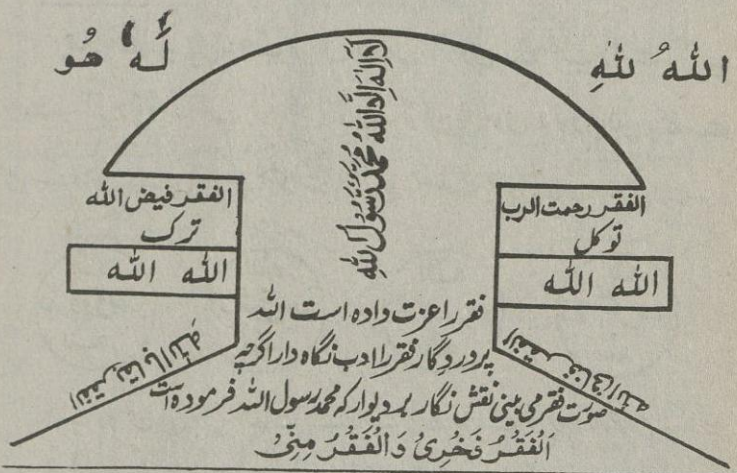 اللهُ لِلّٰهِ
لَهُ هُو
لَا إِلٰهَ إِلَّا اللهُ مُحَمَّدٌ رَسُولُ اللهِ
الفقر رحمت الرب
توکل
الله الله
الفقر فنا فی الله
الفقر فیض الله
ترک
الله الله
الفقر بقا باالله
فقر را عزت داده است الله
پروردگار فقر را ادب نگاه دار اگرچه
صورت فقر می بینی نقش نگار بر دیوار که محمد رسول الله فرموده است
اَلْفَقْرُ فَخْرِیْ وَالْفَقْرُ مِنِّیْ